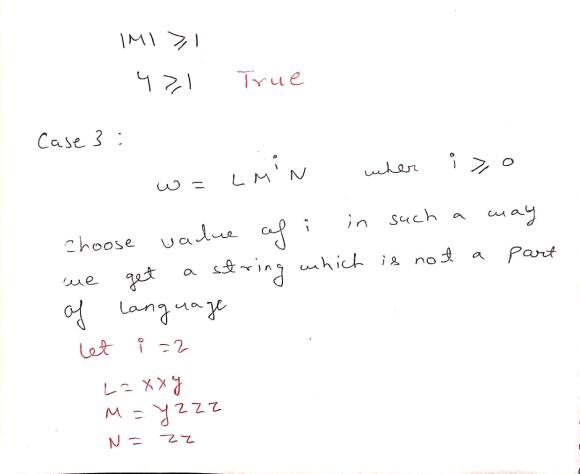 |M| ⩾ 1
4 ⩾ 1 True
Case 3 :
w = L Mⁱ N wher i ⩾ 0
choose value of i in such a way
we get a string which is not a part
of language
Let i = 2
L = xxy
M = yzzz
N = zz